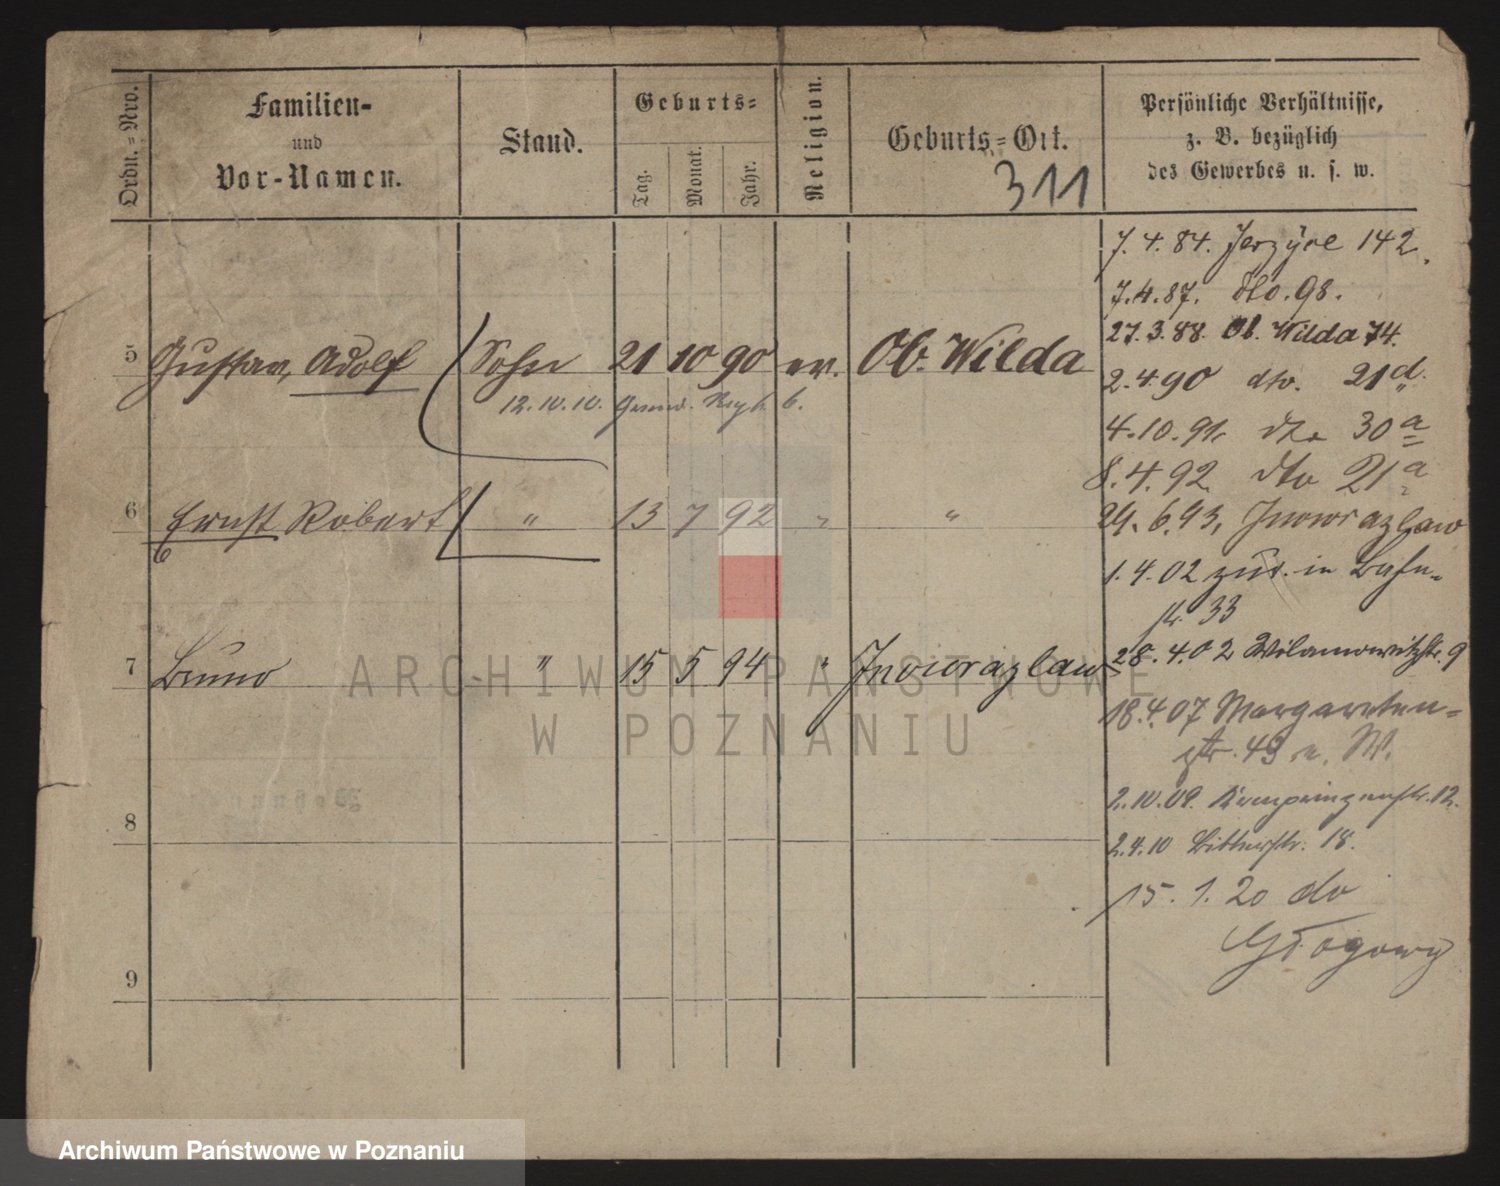 Ordn.-Nro.
Familien-
und
Vor-Namen.
Stand.
Geburts-
Tag.
Monat.
Jahr.
Religion.
Geburts-Ort.
311
Persönliche Verhältnisse,
z. B. bezüglich
des Gewerbes u. s. w.
7.4.84. Jerzyce 142.
7.4.87. dto. 98.
27.3.88. Ob. Wilda 74.
5 Gustav, Adolf Sohn 21 10 90 ev. Ob. Wilda
2.4.90 dto. 21d.
12.10.10. Regt. 6.
4.10.91. dto 30a
8.4.92. dto 21a
6 Ernst Robert " 13 7 92 " "
6
29.6.93, Inowrazlaw
1.4.02 zur. in Bahn-
str. 33
7 Bruno " 15 5 94 " Inowrazlaw
28.4.02 Wilamowitzstr. 9
18.4.07 Margareten-
str. 43 n. W.
2.10.09. Kronprinzenstr. 12.
2.4.10 Bitterstr. 18.
8
15. 1. 20 do
Głogowy
9
ARCHIWUM PAŃSTWOWE
W POZNANIU
Archiwum Państwowe w Poznaniu